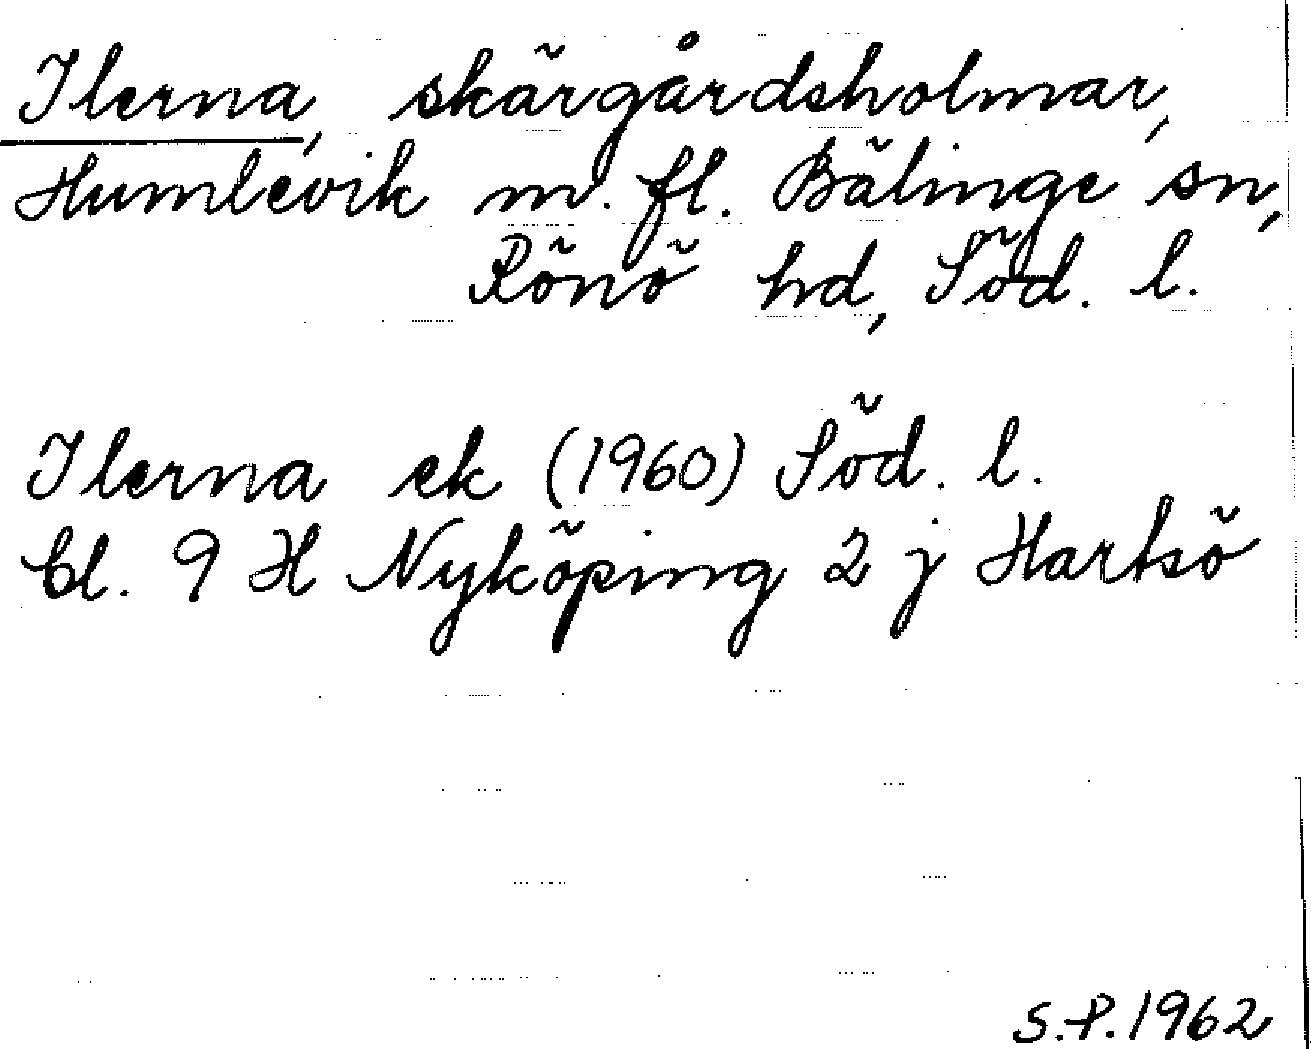 Ilerna, skärgårdsholmar,
Humlevik m. fl. Bälinge sn,
Rönö hd, Söd. l.
Ilerna ek (1960) Söd. l.
Bl. 9 H Nyköping 2 j Hartsö
S.P. 1962